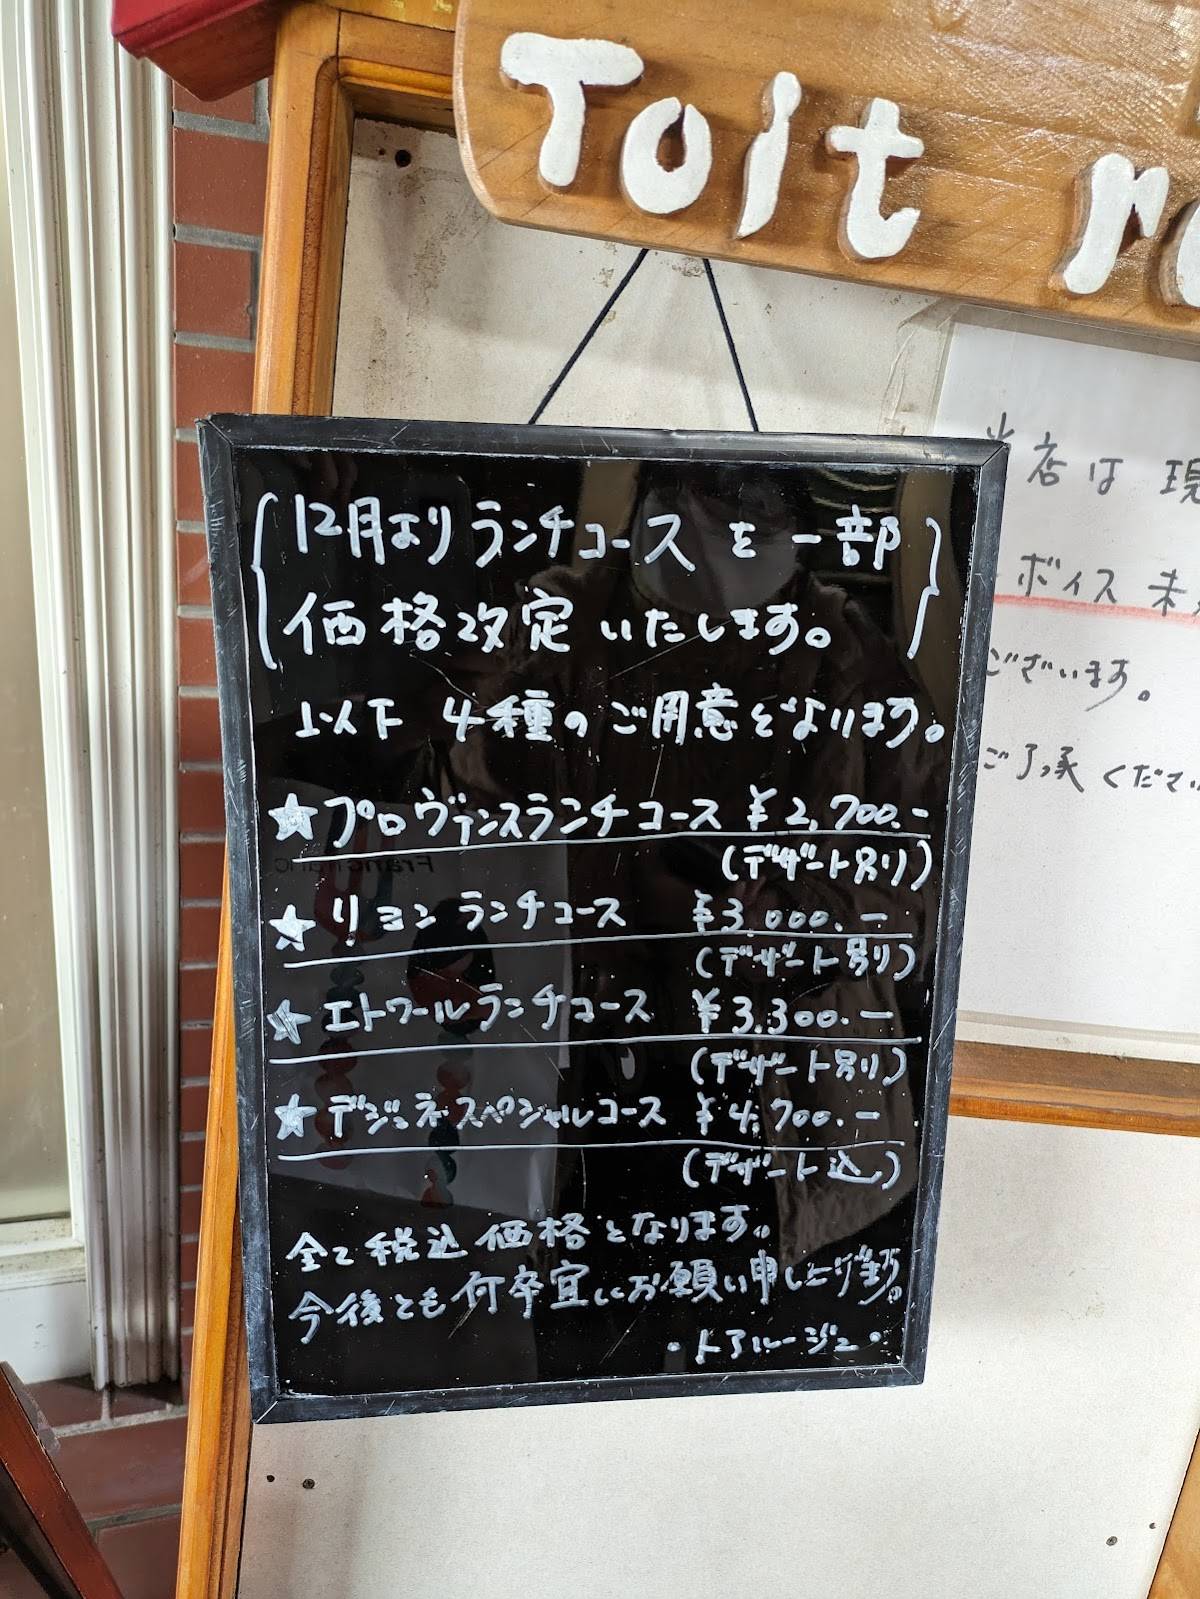 Toit r
{12月よりランチコースを一部
価格改定いたします。}
以下4種のご用意となります。
★プロヴァンスランチコース ¥2,700.-
(デザート別り)
★リヨンランチコース ¥3.000.-
(デザート別り)
★エトワールランチコース ¥3.300.-
(デザート別り)
★デジュネスペシャルコース ¥4,700.-
(デザート込)
全て税込価格となります。
今後とも何卒宜しくお願い申し上げます。
・トアルージュ・
当店は現
ボイス未
ございます。
ご了承ください